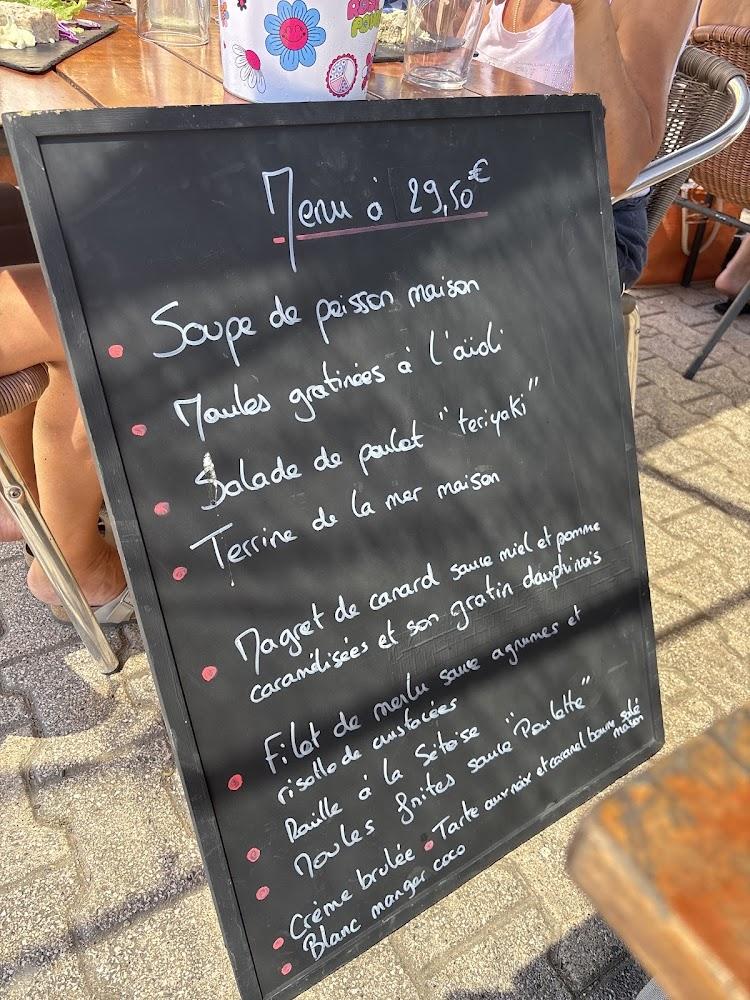 Menu à 29,50€
Soupe de poisson maison
Moules gratinées à l'aïoli
Salade de poulet "teriyaki"
Terrine de la mer maison
Magret de canard sauce miel et pomme
caramélisées et son gratin dauphinois
Filet de merlu sauce agrumes et
risotto de crustacées
Rouille à la Sétoise
Moules frites sauce "Poulette"
Crème brulée • Tarte aux noix et caramel beurre salé
maison
Blanc manger coco